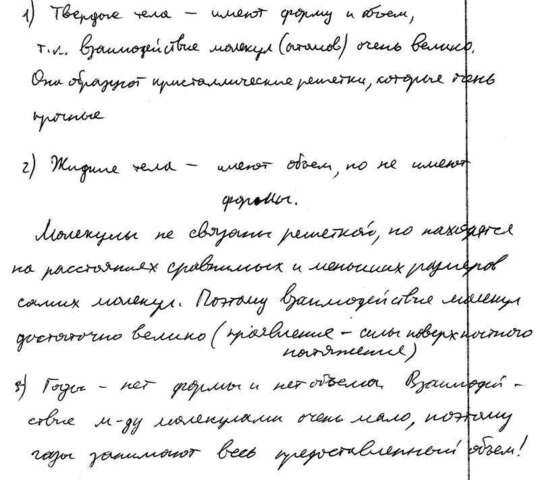 1) Твердые тела – имеют форму и объем,
т.к. взаимодействие молекул (атомов) очень велико.
Они образуют кристаллические решетки, которые очень
прочные
2) Жидкие тела – имеют объем, но не имеют
формы.
Молекулы не связаны решеткой, но находятся
на расстояниях сравнимых и меньших размеров
самих молекул. Поэтому взаимодействие молекул
достаточно велико (проявление – силы поверхностного
натяжения)
3) Газы – нет формы и нет объема. Взаимодей-
ствие м-ду молекулами очень мало, поэтому
газы занимают весь предоставленный объем!